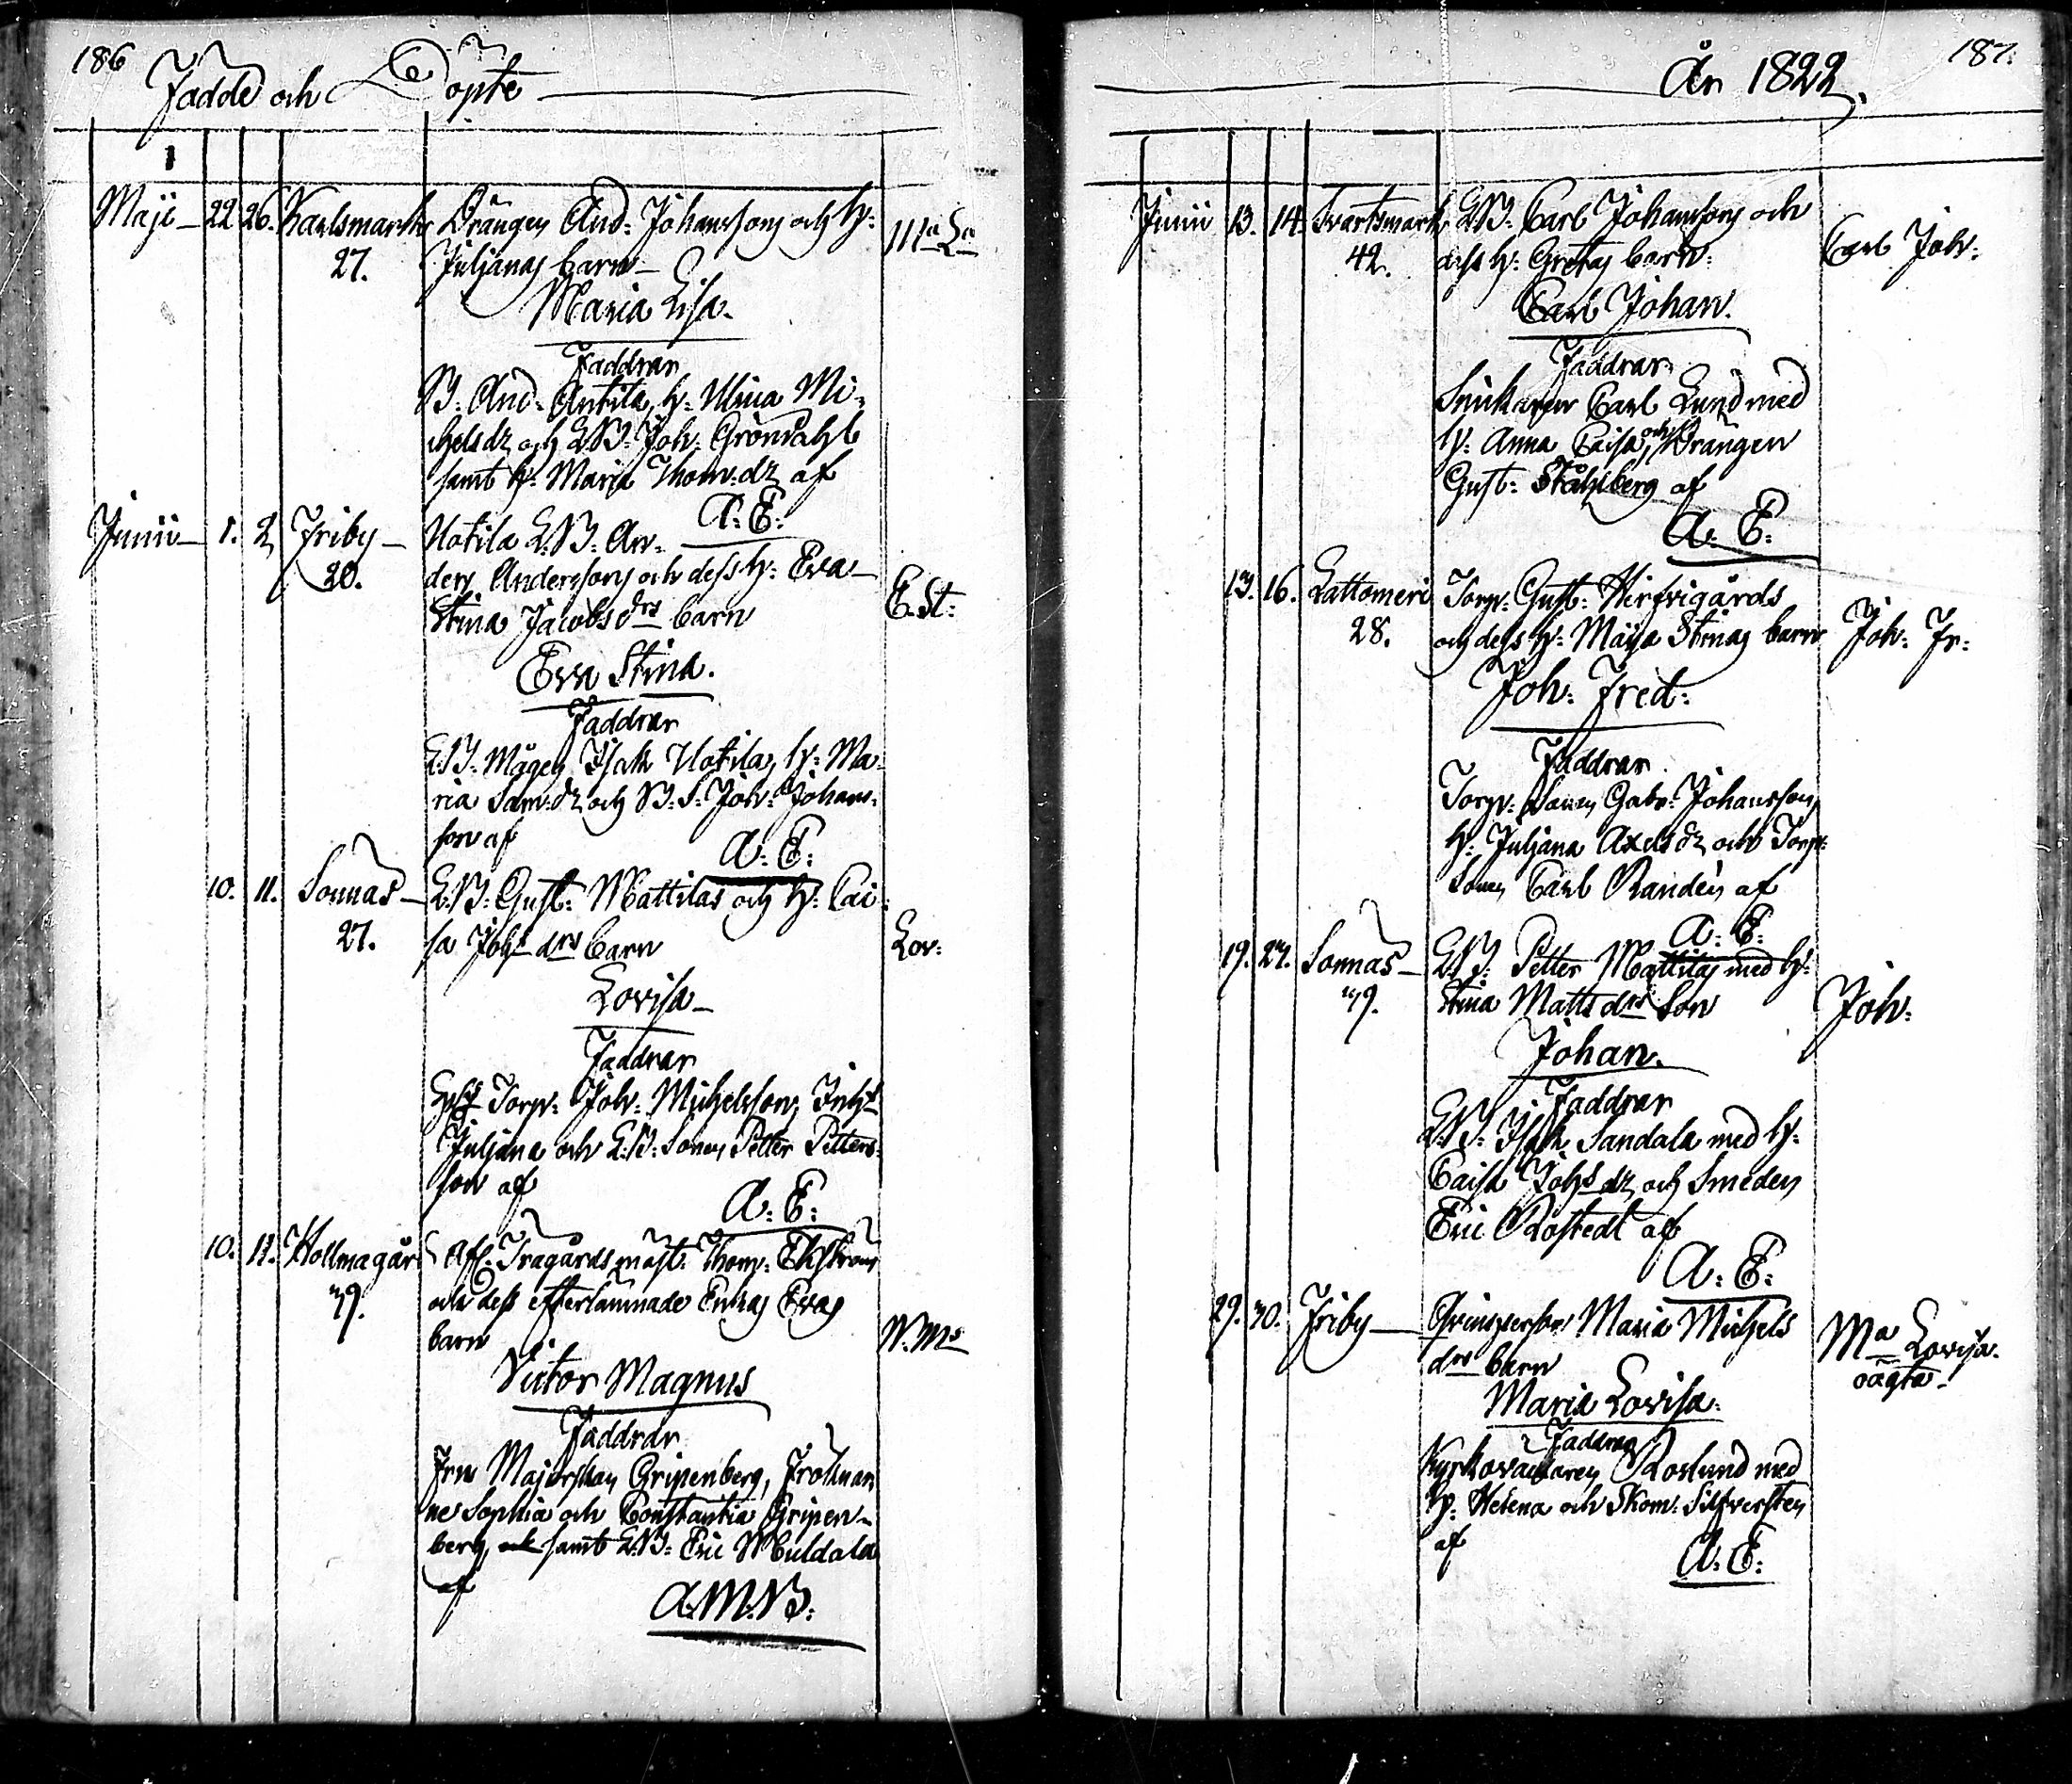 186
Fadde och Döpte
Maji 22 26. Karlsmark Drängen And: Johanssons och h:
27. Juljanas barn
Ma La
Maria Lisa.
Faddrar
B: And: Antila, h: Ulrica Mi-
chelsdr och LB: Joh: Gröndahl
samt h: Maria Thom:dr af
A: E:
Junii 1. 2 Friby Uotila L:B: An-
20. ders Anderssons och dess h: Eva
Stina Jacobsdrs barn
E. St:
Eva Stina.
Faddrar
LB: Mågen Isak Uotila, h: Ma-
ria Sam:dr och B: S: Joh: Johans-
son af
A: E:
10. 11. Sonnas LB: Gust: Mattilas och h: Cai-
27. sa Johs drs barn
Lov:
Lovisa
Faddrar
Torp: Joh: Michelsson, Inhs
Juljana och L:B: Sonen Petter Petters-
son af
A: E:
10. 11. Hollmagår Afl: Trägårdsmäst: Thom: Ekström
39. och dess efterlämnade Enkas Evas
barn
V. Ms
Victor Magnus
Faddrar
Fru Majorskan Gripenberg, Fröknar-
ne Sophia och Constantia Gripen-
berg, och samt LB: Eric Muldala
af
A.M.B:
År 1822.
187.
Junii 13. 14. Svartsmark LB: Carl Johanssons och
42. dess h: Gretas barn:
Carl Joh:
Carl Johan.
Faddrar
Snickaren Carl Lund med
h: Anna Caisa, och Drängen
Gust: Ståhlberg af
A: E:
13. 16. Lattomeri Torp: Gust: Hirfvigårds
28. och dess h: Maja Stinas barn
Joh: Fr:
Joh: Fred:
Faddrar
Torp: Sonen Gabr: Johansson,
h: Juljana Axelsdr och Torp:
Sonen Carl Randén af
A: E:
19. 23. Sonnas LB: Petter Mattilas med h:
39. Stina Matts drs Son
Joh:
Johan.
Faddrar
LB: Isak Sandala med h:
Caisa Johsdr och Smeden
Eric Rostedt af
A: E:
29. 30. Friby Qvinspersons Maria Michels
drs barn
Ma Lovisa.
oägta
Maria Lovisa.
Faddrar
Kyrkovacktaren Roslund med
h: Helena och Skom: Silfversten
af
A: E: